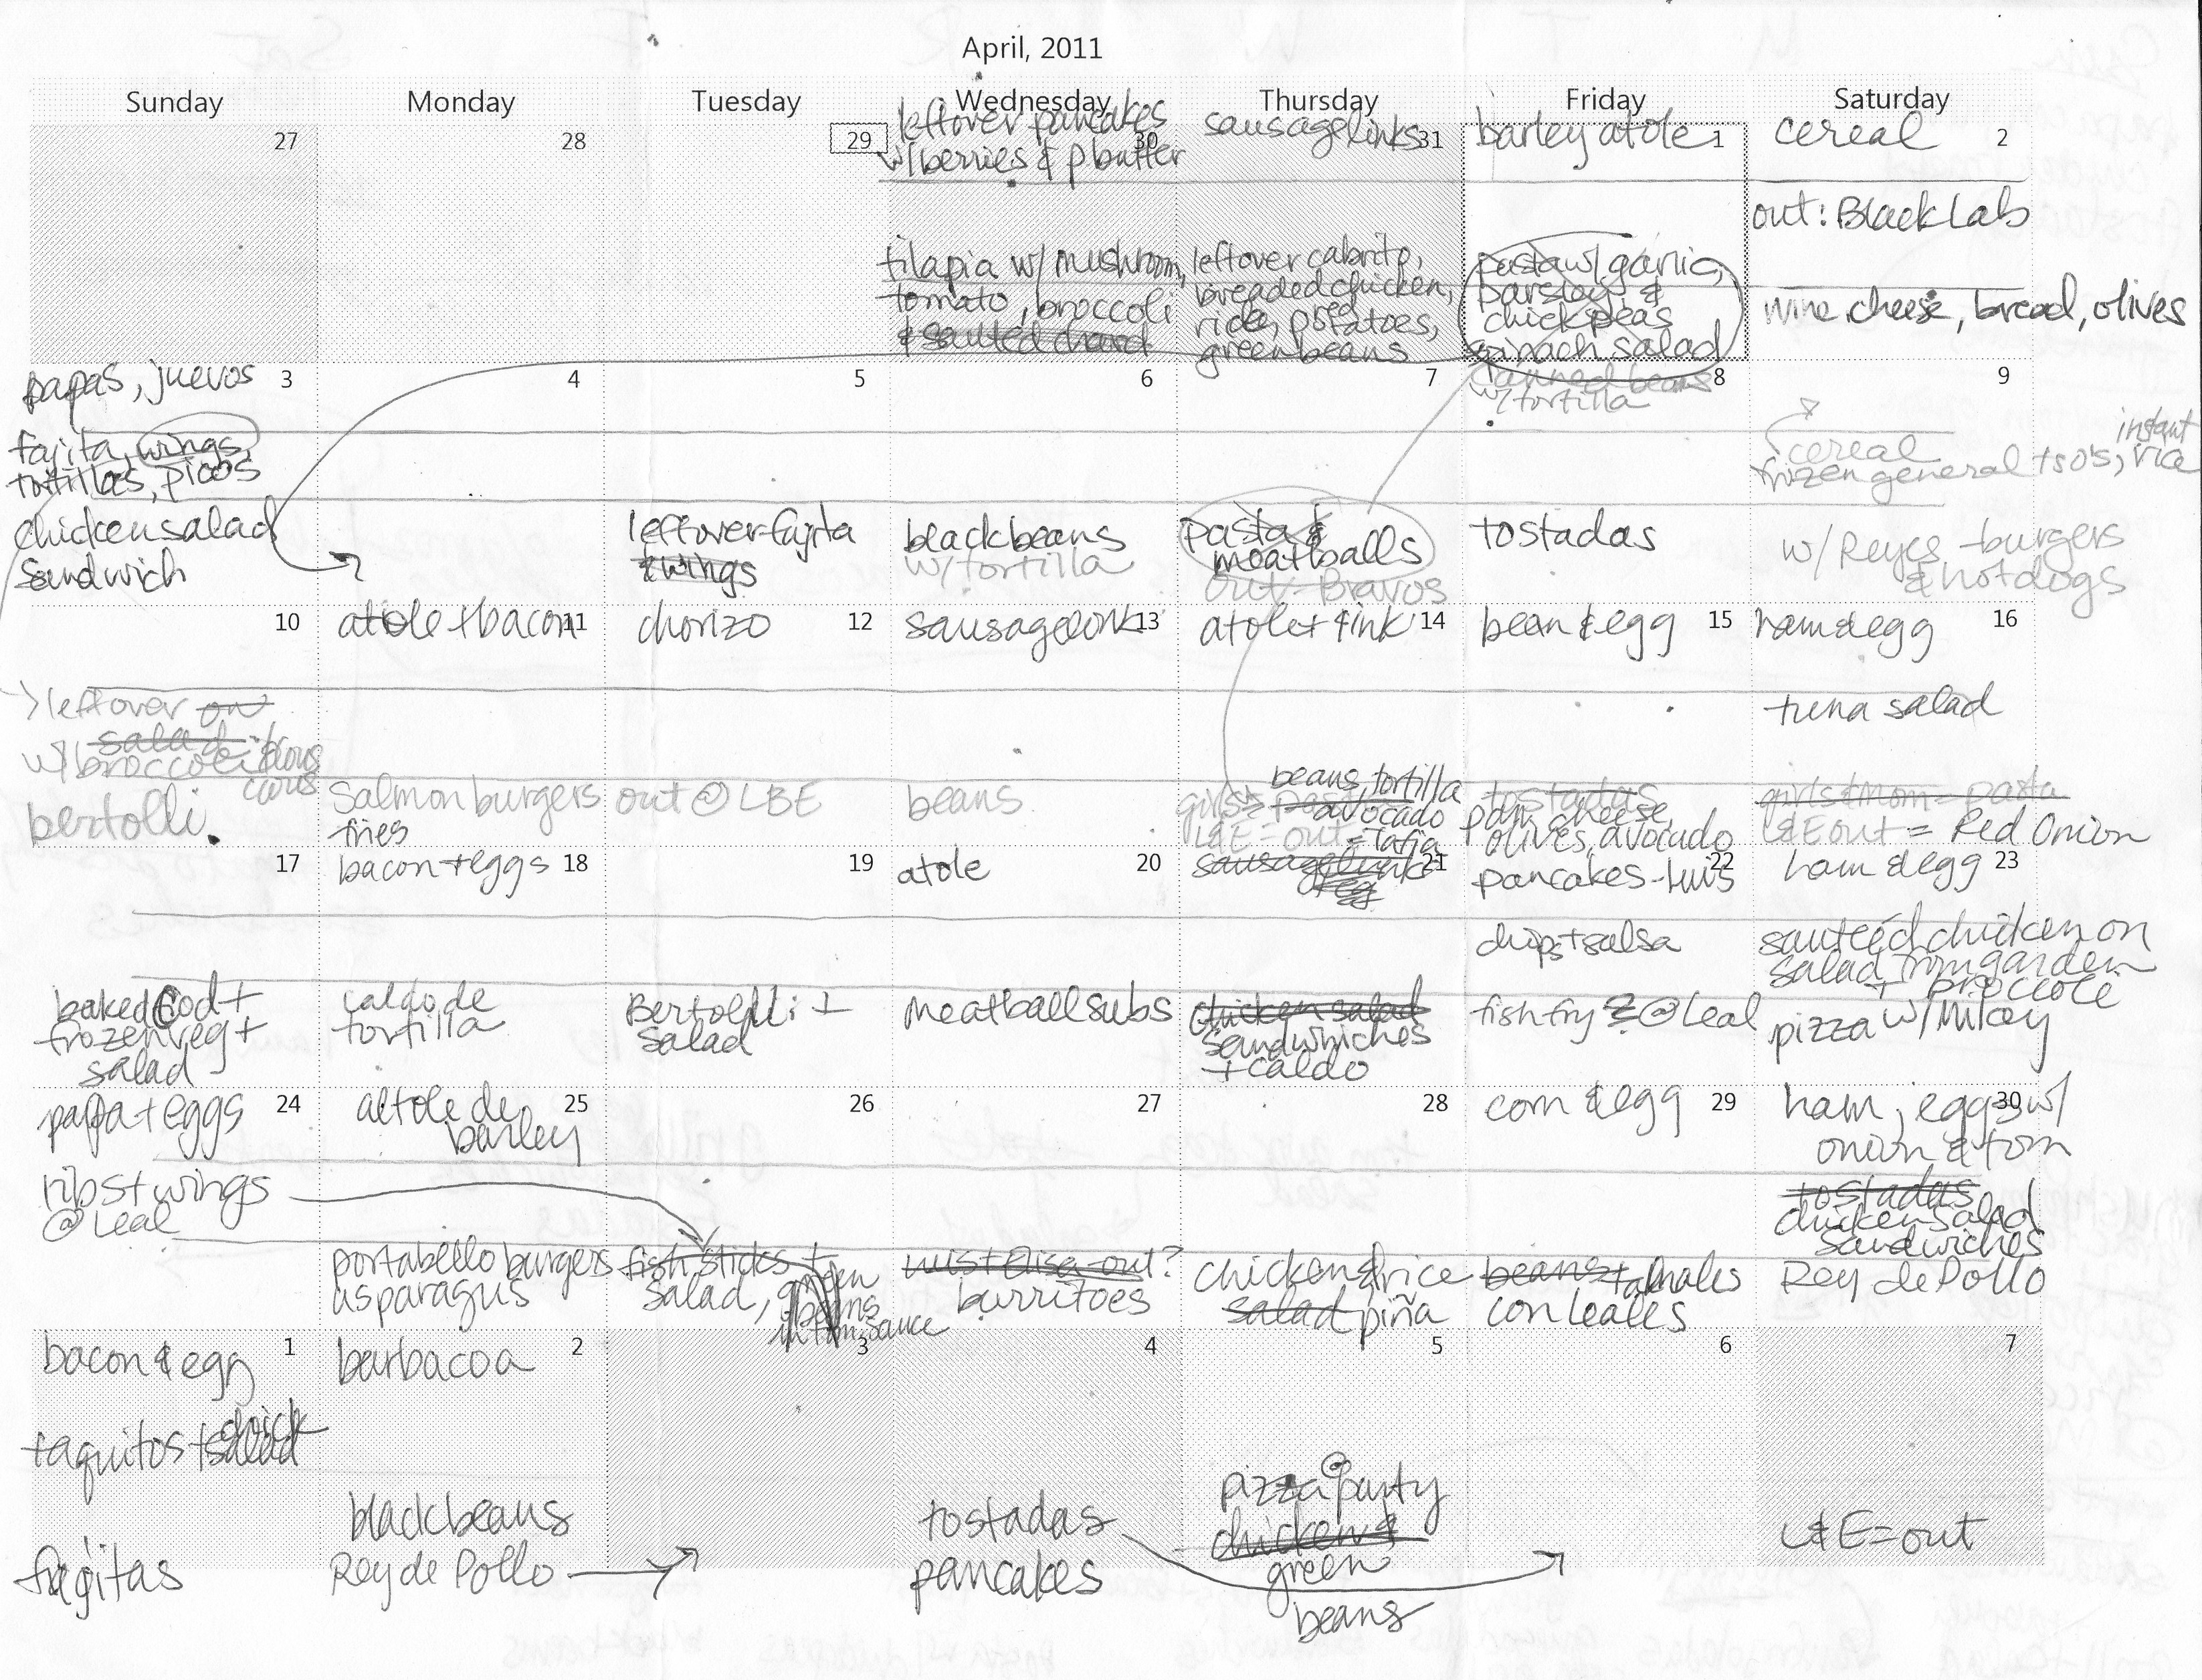 April, 2011
Sunday Monday Tuesday Wednesday Thursday Friday Saturday
27
28
29
30
leftover pancakes
w/berries & p butter
tilapia w/ mushroom,
tomato, broccoli
& sautéd chard
31
sausage links
leftover cabrito,
breaded chicken,
rice, red potatoes,
green beans
1
barley atole
pasta w/ garlic,
parsley, &
chick peas
spinach salad
2
cereal
out: Black Lab
wine, cheese, bread, olives
3
papas, juevos
fajita, wings,
tortillas, picos
chicken salad
sandwich
4
5
leftover fajita
& wings
6
black beans
w/ tortilla
7
pasta &
meatballs
out - Bravos
8
canned beans
w/ tortilla
tostadas
9
cereal
frozen general tso's, instant rice
w/ Reyes - burgers
& hotdogs
10
leftover on
salad
w/ broccoli
bertolli.
11
atole + bacon
Salmon burgers
fries
12
chorizo
out @ LBE
13
sausage
beans
14
atole + link
girls =
beans, tortilla
avocado
L&E = out =
15
bean & egg
tostadas
pan, cheese,
olives, avocado
16
ham & egg
tuna salad
girls & Mom = pasta
L&E out = Red Onion
17
baked Cod +
frozen veg +
salad
18
bacon + eggs
caldo de
tortilla
19
Bertolli +
salad
20
atole
meatball subs
21
sausage link
chicken salad
sandwhiches
+ caldo
22
pancakes - Luis
chips + salsa
fish fry @ Leal
23
ham & egg
sauteéd chicken on
salad from garden
+ broccoli
pizza w/ Mikey
24
papa + eggs
ribs + wings
@ Leal
25
altole de
barley
portabello burgers
asparagus
26
fish sticks +
salad, green
beans
in tom. sauce
27
Luis + Elisa - out?
burritoes
28
chicken & rice
salad piña
29
corn & egg
beans + tamales
con Leales
30
ham, eggs w/
onion & tom
tostadas
chicken salad
sandwiches
Rey de Pollo
1
bacon & egg
taquitos + chick
salad
fagitas
2
barbacoa
black beans
Rey de Pollo
3
4
tostadas
pancakes
5
pizza party
chicken &
green
beans
6
7
L&E = out